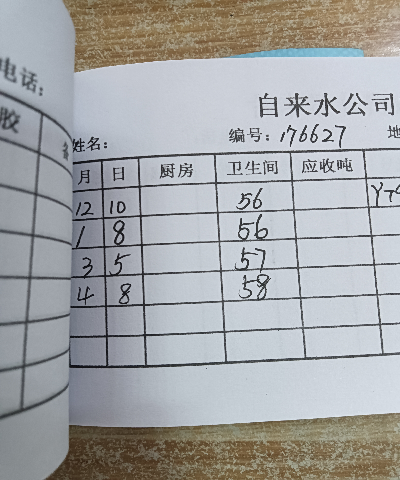 电话:
胶
自来水公司
姓名: 编号: 176627 地
月 日 厨房 卫生间 应收吨
12 10 56
1 8 56
3 5 57
4 8 58